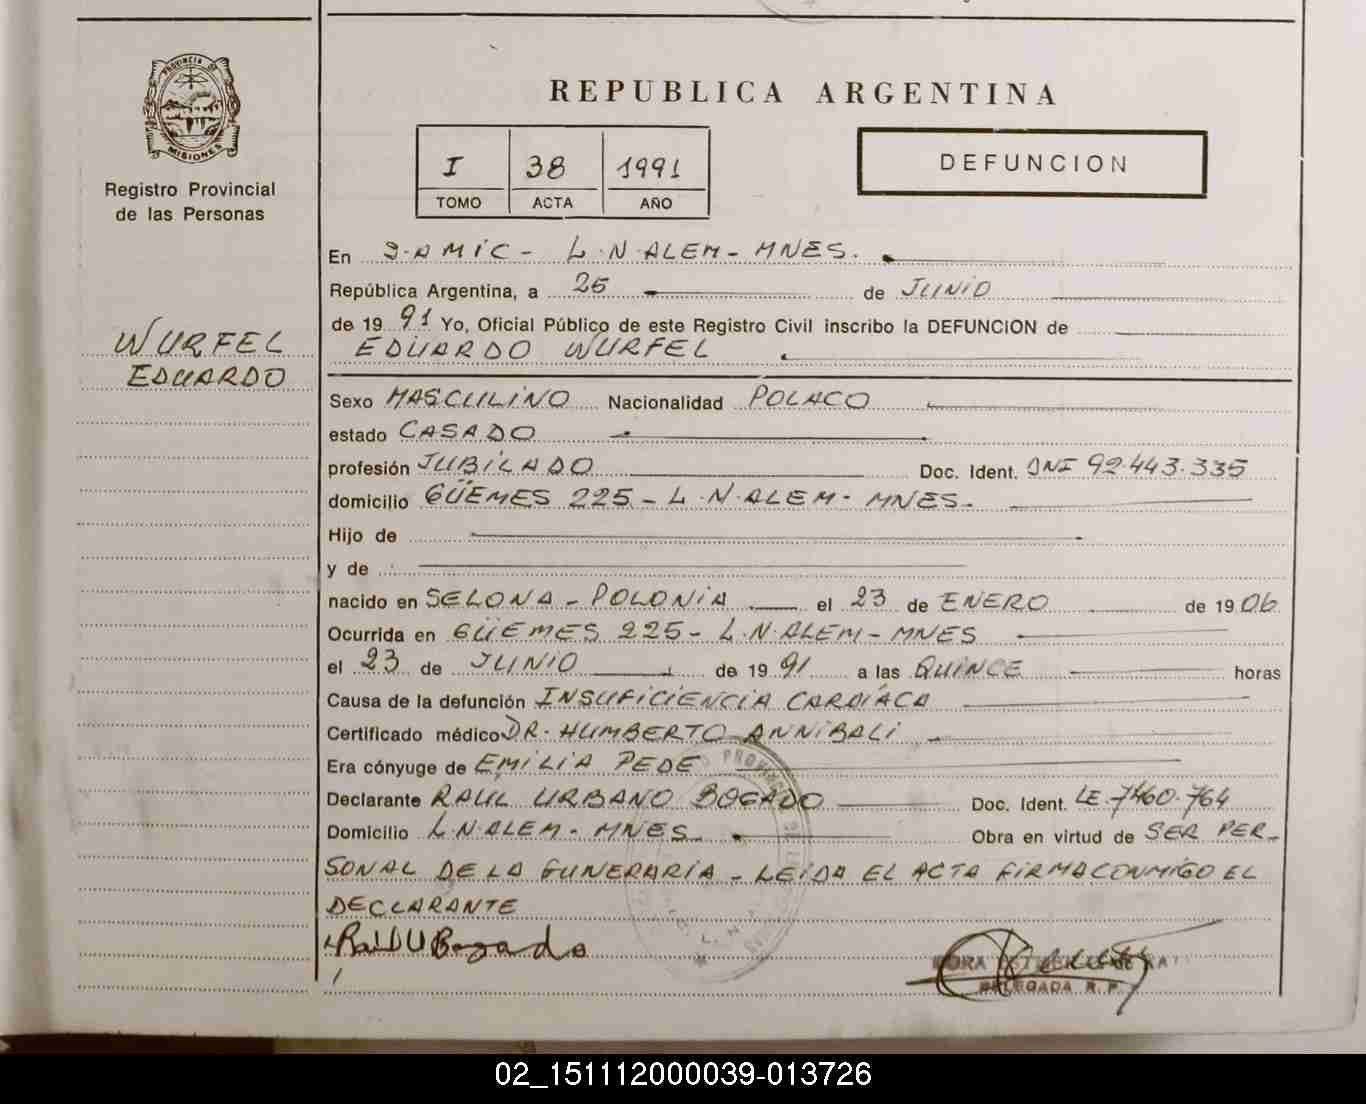 PROVINCIA DE
MISIONES
Registro Provincial
de las Personas
WURFEL
EDUARDO
REPUBLICA ARGENTINA
I 38 1991
TOMO ACTA AÑO
DEFUNCION
En D. AMIC - L. N. ALEM - MNES.
República Argentina, a 25 de JUNIO
de 1991 Yo, Oficial Público de este Registro Civil inscribo la DEFUNCION de
EDUARDO WURFEL
Sexo MASCULINO Nacionalidad POLACO
estado CASADO
profesión JUBILADO Doc. Ident. DNI 92.443.335
domicilio GÜEMES 225 - L. N. ALEM - MNES -
Hijo de
y de
nacido en SELONA - POLONIA el 23 de ENERO de 1906
Ocurrida en GÜEMES 225 - L. N. ALEM - MNES
el 23 de JUNIO de 1991 a las QUINCE horas
Causa de la defunción INSUFICIENCIA CARDÍACA
Certificado médico DR. HUMBERTO ANNIBALI
Era cónyuge de EMILIA PEDE
Declarante RAUL URBANO BOGADO Doc. Ident. LE. 7460.764
Domicilio L. N. ALEM - MNES Obra en virtud de SER PER-
SONAL DE LA FUNERARIA - LEIDA EL ACTA FIRMA CONMIGO EL
DECLARANTE
Raul U Bogado
DELEGADA R. P.
02_151112000039-013726